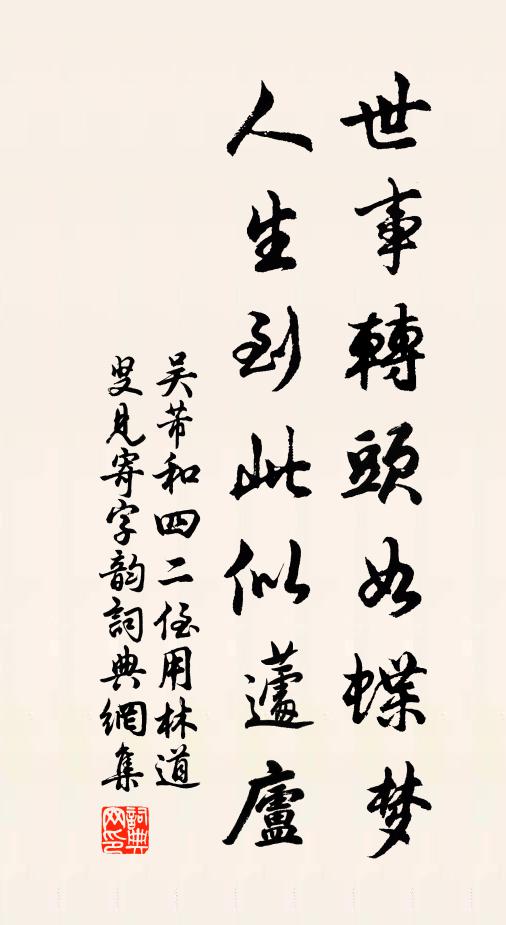 世事轉頭如蝶梦
人生到此似蘧廬
吴芾和四二侄用林道
叟見寄字韵詞典網集
詞典
网印